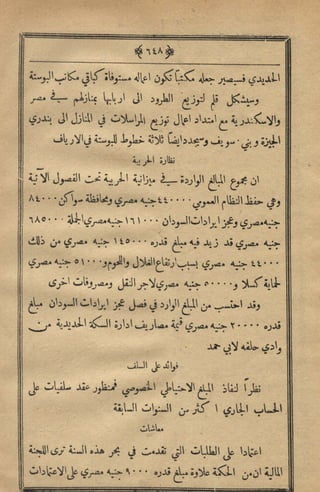 ﴿٦٤٨﴾
الحديدي فسيصير جعله مكتبًا تكون اعماله مستوفاة كباقي مكاتب البوستة
وسيشكل قلم لتوزيع الطرود الى اربابها بمنازلهم في مصر
والاسكندرية مع امتداد اعمال توزيع المراسلات في المنازل الى بندري
الجيزة وبني سويف وسيجدد ايضًا ثلاثة خطوط للبوستة في الارياف
نظارة الحربية
ان مجموع المبالغ الواردة في ميزانية الحربية تحت الفصول الآتية
وهي حفظ النظام العمومي ٤٤٠٠٠٠ جنيه مصري ومحافظة سواكن ٨٤٠٠٠
جنيه مصري وعجز ايرادات السودان ١٦١٠٠٠ جنيه مصري الجملة ٦٨٥٠٠٠
جنيه مصري قد زيد فيه مبلغ قدره ١٤٥٠٠٠ جنيه مصري من ذلك
٤٤٠٠٠ جنيه مصري بسبب ارتفاع الغلال واللحوم و٥١٠٠٠ جنيه مصري
لحماية كسلا و٥٠٠٠٠ جنيه مصري لاجر النقل ومصروفات اخرى
وقد احتسب من المبلغ الوارد في فصل عجز ايرادات السودان مبلغ
قدره ٢٠٠٠٠ جنيه مصري قيمة مصاريف ادارة السكة الحديدية من
وادي حلفه لابي حمد
فوائد على السلف
نظرًا لنفاذ المبلغ الاحتياطي الخصوصي فمنظور عقد سلفيات على
الحساب الجاري اكثر من السنوات السابقة
معاشات
اعتمادا على الطلبات التي تقدمت في بحر هذه السنة ترى اللجنة
المالية ان من الحكمة علاوة مبلغ قدره ٩٠٠٠ جنيه مصري على الاعتمادات